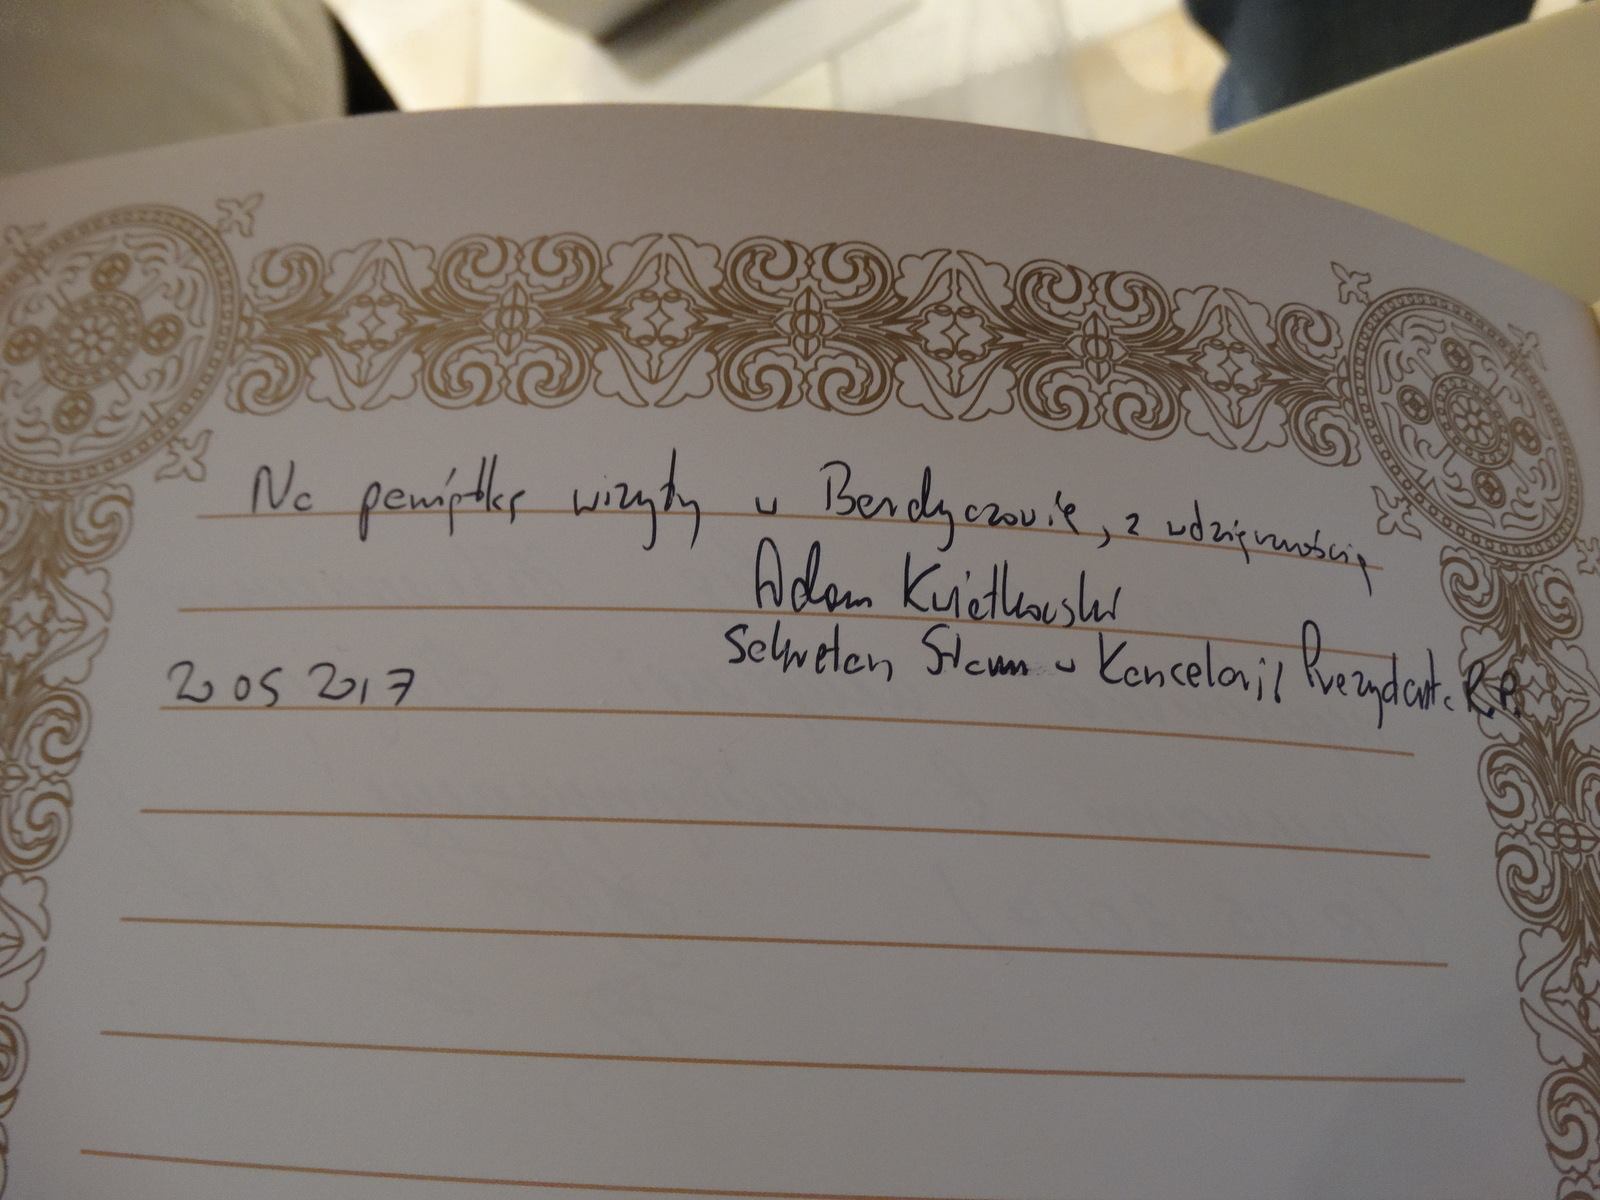 Na pamiątkę wizyty w Berdyczowie, z wdzięcznością
Adam Kwiatkowski
Sekretarz Stanu w Kancelarii Prezydenta R.P.
20 05 2017